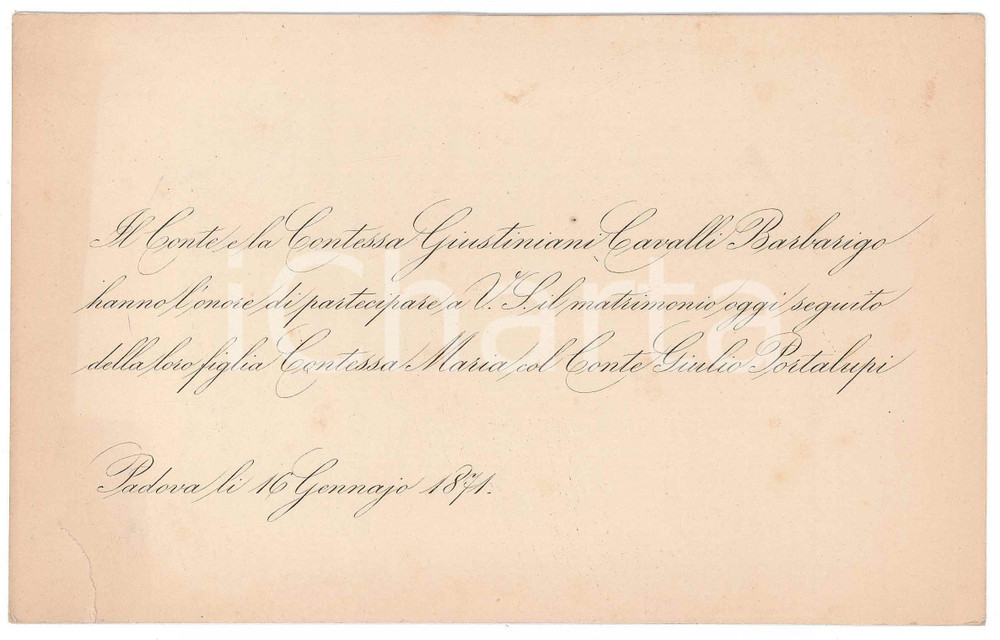 Il Conte e la Contessa Giustiniani Cavalli Barbarigo
hanno l'onore di partecipare a V. S. il matrimonio oggi seguito
della loro figlia Contessa Maria col Conte Giulio Portalupi
Padova li 16 Gennajo 1871.
iCharta